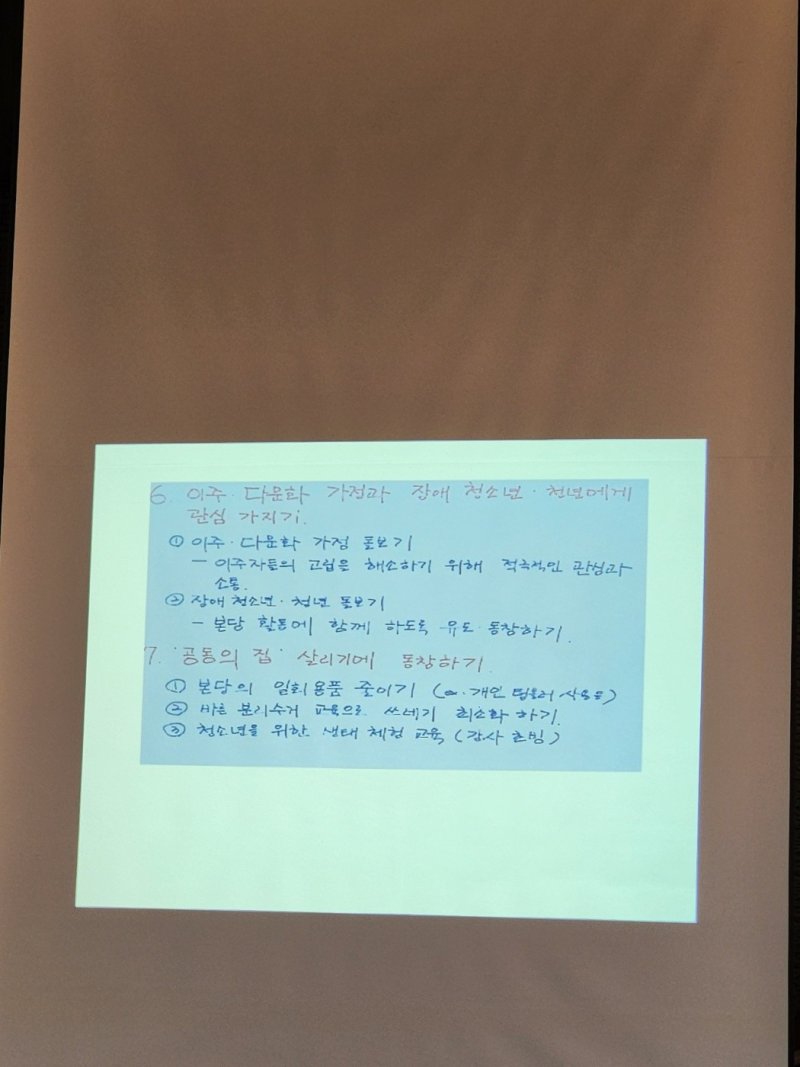 6. 이주·다문화 가정과 장애 청소년·청년에게
관심 가지기.
① 이주·다문화 가정 돌보기
- 이주자들의 고립을 해소하기 위해 적극적인 관심과
소통.
② 장애 청소년·청년 돌보기
- 본당 활동에 함께 하도록 유도·동참하기.
7. '공동의 집' 살리기에 동참하기.
① 본당의 일회용품 줄이기 (ex. 개인 텀블러 사용 등)
② 바른 분리수거 교육으로 쓰레기 최소화 하기.
③ 청소년을 위한 생태 체험 교육 (강사 초빙)